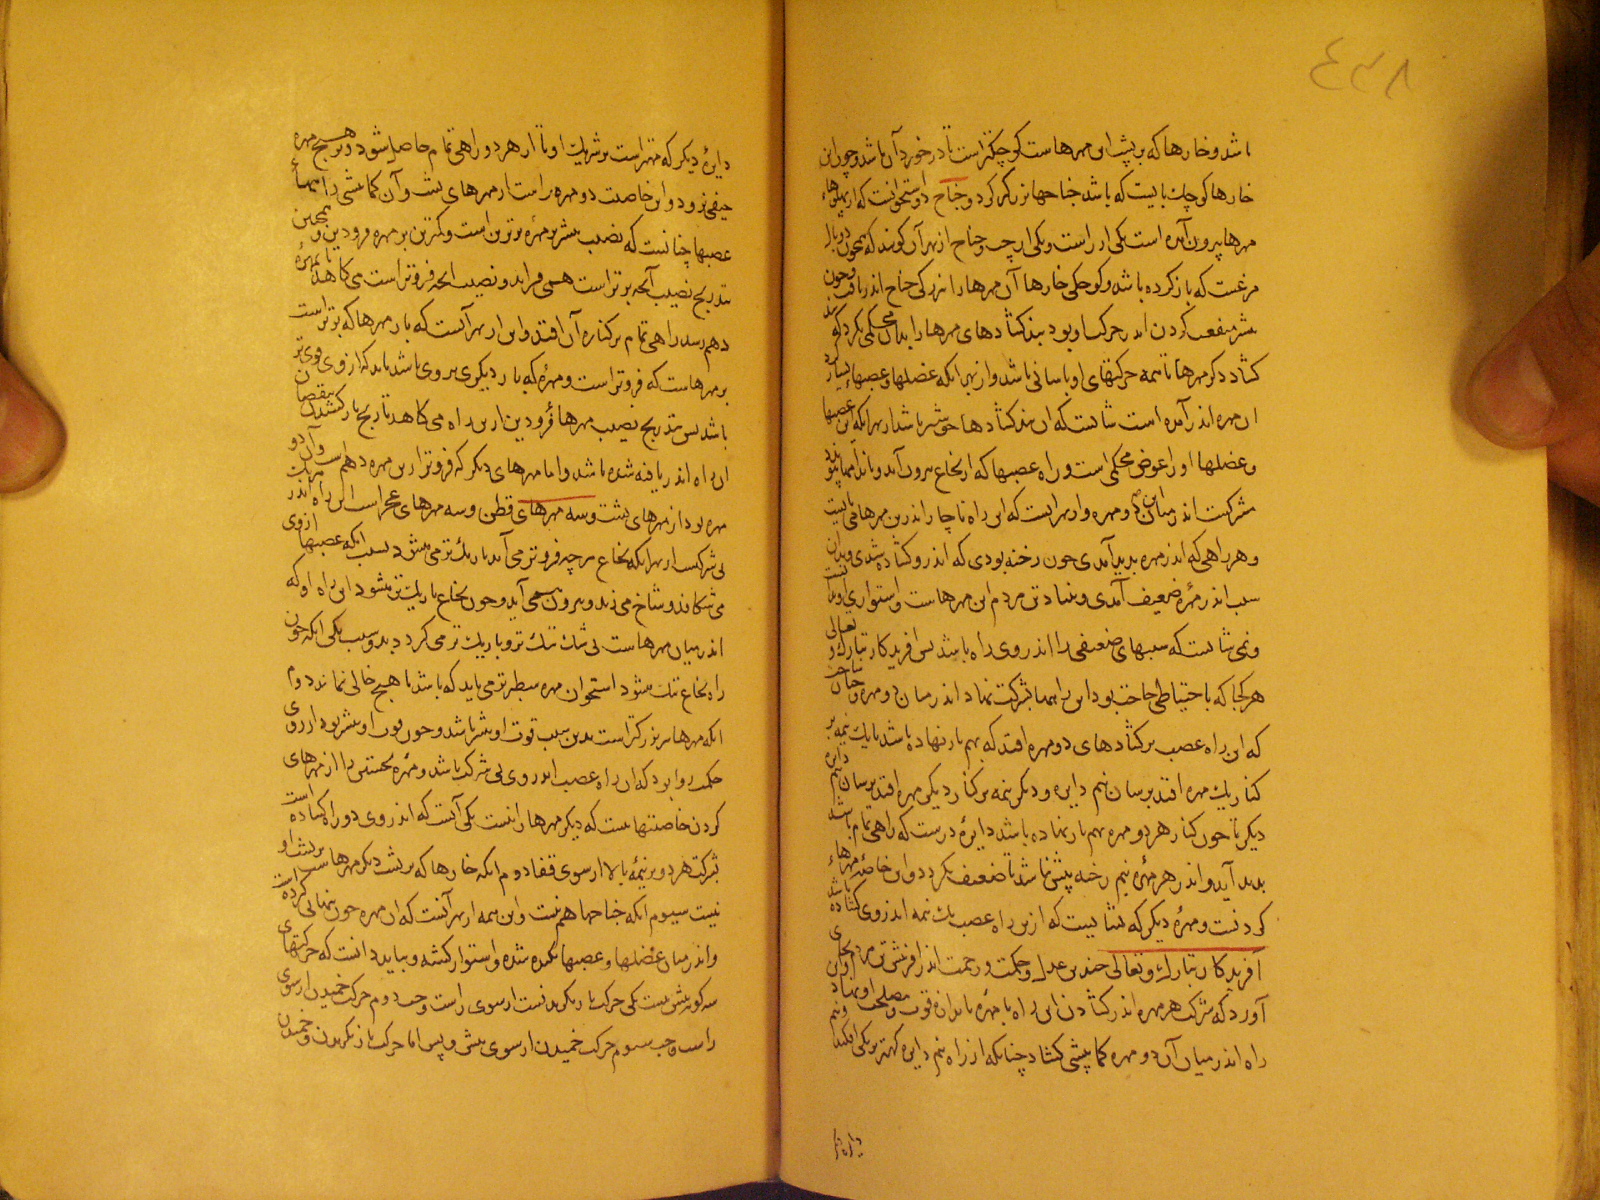 ٤٣٨
باشد و خارها که بر پشت این مهرها ست کوچکتر است تا در خورد آن باشد و چون این
خارها کوچک بایست که باشد جناحها بزرگ کرد و جناح دو استخوانست که از پهلوهاء
مهرها بیرون آمده است یکی از راست و یکی از چپ و جناح از بهر آن گویند که همچون دو بال
مرغست که باز کرده باشد و کوچکی خارها آن مهرها را بزرگی جناح اندر یافت و چون
بیشتر منفعت گردن اندر حرکت او بود بند گشادهای مهرها را بدان محکمی نکرد که
گشاد دیگر مهرها تا همه حرکتهای او باسانی باشد و از بهر انکه عضلها و عصبهاء بسیار گرد
ان مهره اندر آمده است شایست که ان بند گشادها باشد از بهر انکه این عصبها
و عضلها او را عوض محکمی است و راه عصبها که از نخاع بیرون آید و باندامها پیوندد
مشرکت اندر میان این دو مهره و از بهر انست که این راه ناچار اندرین مهرها می بایست
و هر راهی که اندر مهره پدید آمدی چون رخنه بودی که اندرو گشاده شدی و بدان
سبب اندر مهره ضعیف آمدی و بنیاد تن مردم این مهرها ست و استواری
و نمی شایست که سببهای ضعیفی را اندر وی راه باشد پس آفریدکار تبارک و تعالی
هر کجا که باحتیاطی حاجت بود این راهها بشرکت نهاد اندر میان دو مهره
که این راه عصب بر گشادهای دو مهره افتد که بهم باز نهاده باشد تا یک نیمه بر
کنار یک مهره افتد برسان نیم دایره و دیگر نیمه بر کنار دیگر مهره افتد برسان نیم دایره
دیگر تا چون کنار هر دو مهره بهم باز نهاده باشد دایره درست که راهی تمام باشد
پدید آید و اندر هر مهره نیم رخنه بیش نباشد تا ضعیف نگردد و این خاصه مهرهاء
گردنست و مهره دیگر که نشایست که ازین راه عصب یک نیمه اندر وی گشاده باشد
آفریدکار تبارک و تعالی چندین عدل و حکمت و رحمت اندر آفرینش تن مردم
آورد که شرکت هر مهره اندر گشادن این راه با مهره باندازه قوت و مصلحت او نهاد
راه اندر میان آن دو مهره کما بیشی گشاد چنانکه از راه نیم دایره کهتر بر یکی افکند و نیم
دایره دیگر
دایره دیگر که مهتر است بر شریک او تا از هر دو راهی تمام حاصل شود و بر هیچ مهره
حیفی نرود و این خاصیت دو مهره راست از مهرهای پشت و آن کما بیشی راهها
عصبها چنانست که نصیب بیشتر بر مهره برترین است و کمترین بر مهره فرودین و همچنین
بتدریج نصیب آنچه برتر است همی فزاید و نصیب انچه فروتر است می کاهد تا بمهره
دهم رسد راهی تمام بر کناره آن افتد و این از بهر آنست که بار مهرها که برتر است
بر مهرها ست که فروتر است و مهره که بار دیگری بروی باشد باید که از وی قوی تر
باشد پس بتدریج نصیب مهرها فرودین ازین راه می کاهد تا رنج بار کشیدن بنقصان
ان راه اندر یافته شده باشد و اما مهرهای دیگر که فروتر ازین مهره دهم است و آن دو
مهره بود از مهرهای پشت و سه مهرهای قطن و سه مهرهای عجز است این راه اندر هر یک
بی شرکت از بهر انکه نخاع هر چه فروتر می آید باریک تر می شود بسبب انکه عصبها از وی
می شکافد و شاخ می زند و بیرون همی آید و چون نخاع باریک تر می شود این راه او که
اندر میان مهرها ست بی شک تنک تر و باریک تر می گردد بدو سبب یکی انکه چون
راه نخاع تنک شود استخوان مهره سطبرتر می باید که باشد تا هیچ خالی نماند دوم
انکه مهرها بزرگتر است بدین سبب قوت او بیشتر باشد و چون قوت او بیشتر بود از روی
حکمت روا بود که ان راه عصب اندر وی بی شرکت باشد و مهره نخستین را از مهرهای
گردن خاصیتها ست که دیگر مهرها را نیست یکی آنست که اندر وی دو راه گشاده است
بشرکت هر دو بر نیمه بالا از سوی قفا دوم انکه خارها که بر پشت دیگر مهرها ست بر پشت او
نیست سیوم انکه جناحها هم نیست و این همه از بهر آنست که ان مهره چون پنهانی کرده است
و اندر میان عضلها و عصبها آکنده شده و استوار گشته و بباید دانست که حرکتهای
سه گونه بیش نیست یکی حرکت باز نگریدنست از سوی راست و چپ دوم حرکت خمیدن از سوی
راست و چپ سیوم حرکت خمیدن از سوی پیش و پس اما حرکت باز نگریدن و خمیدن